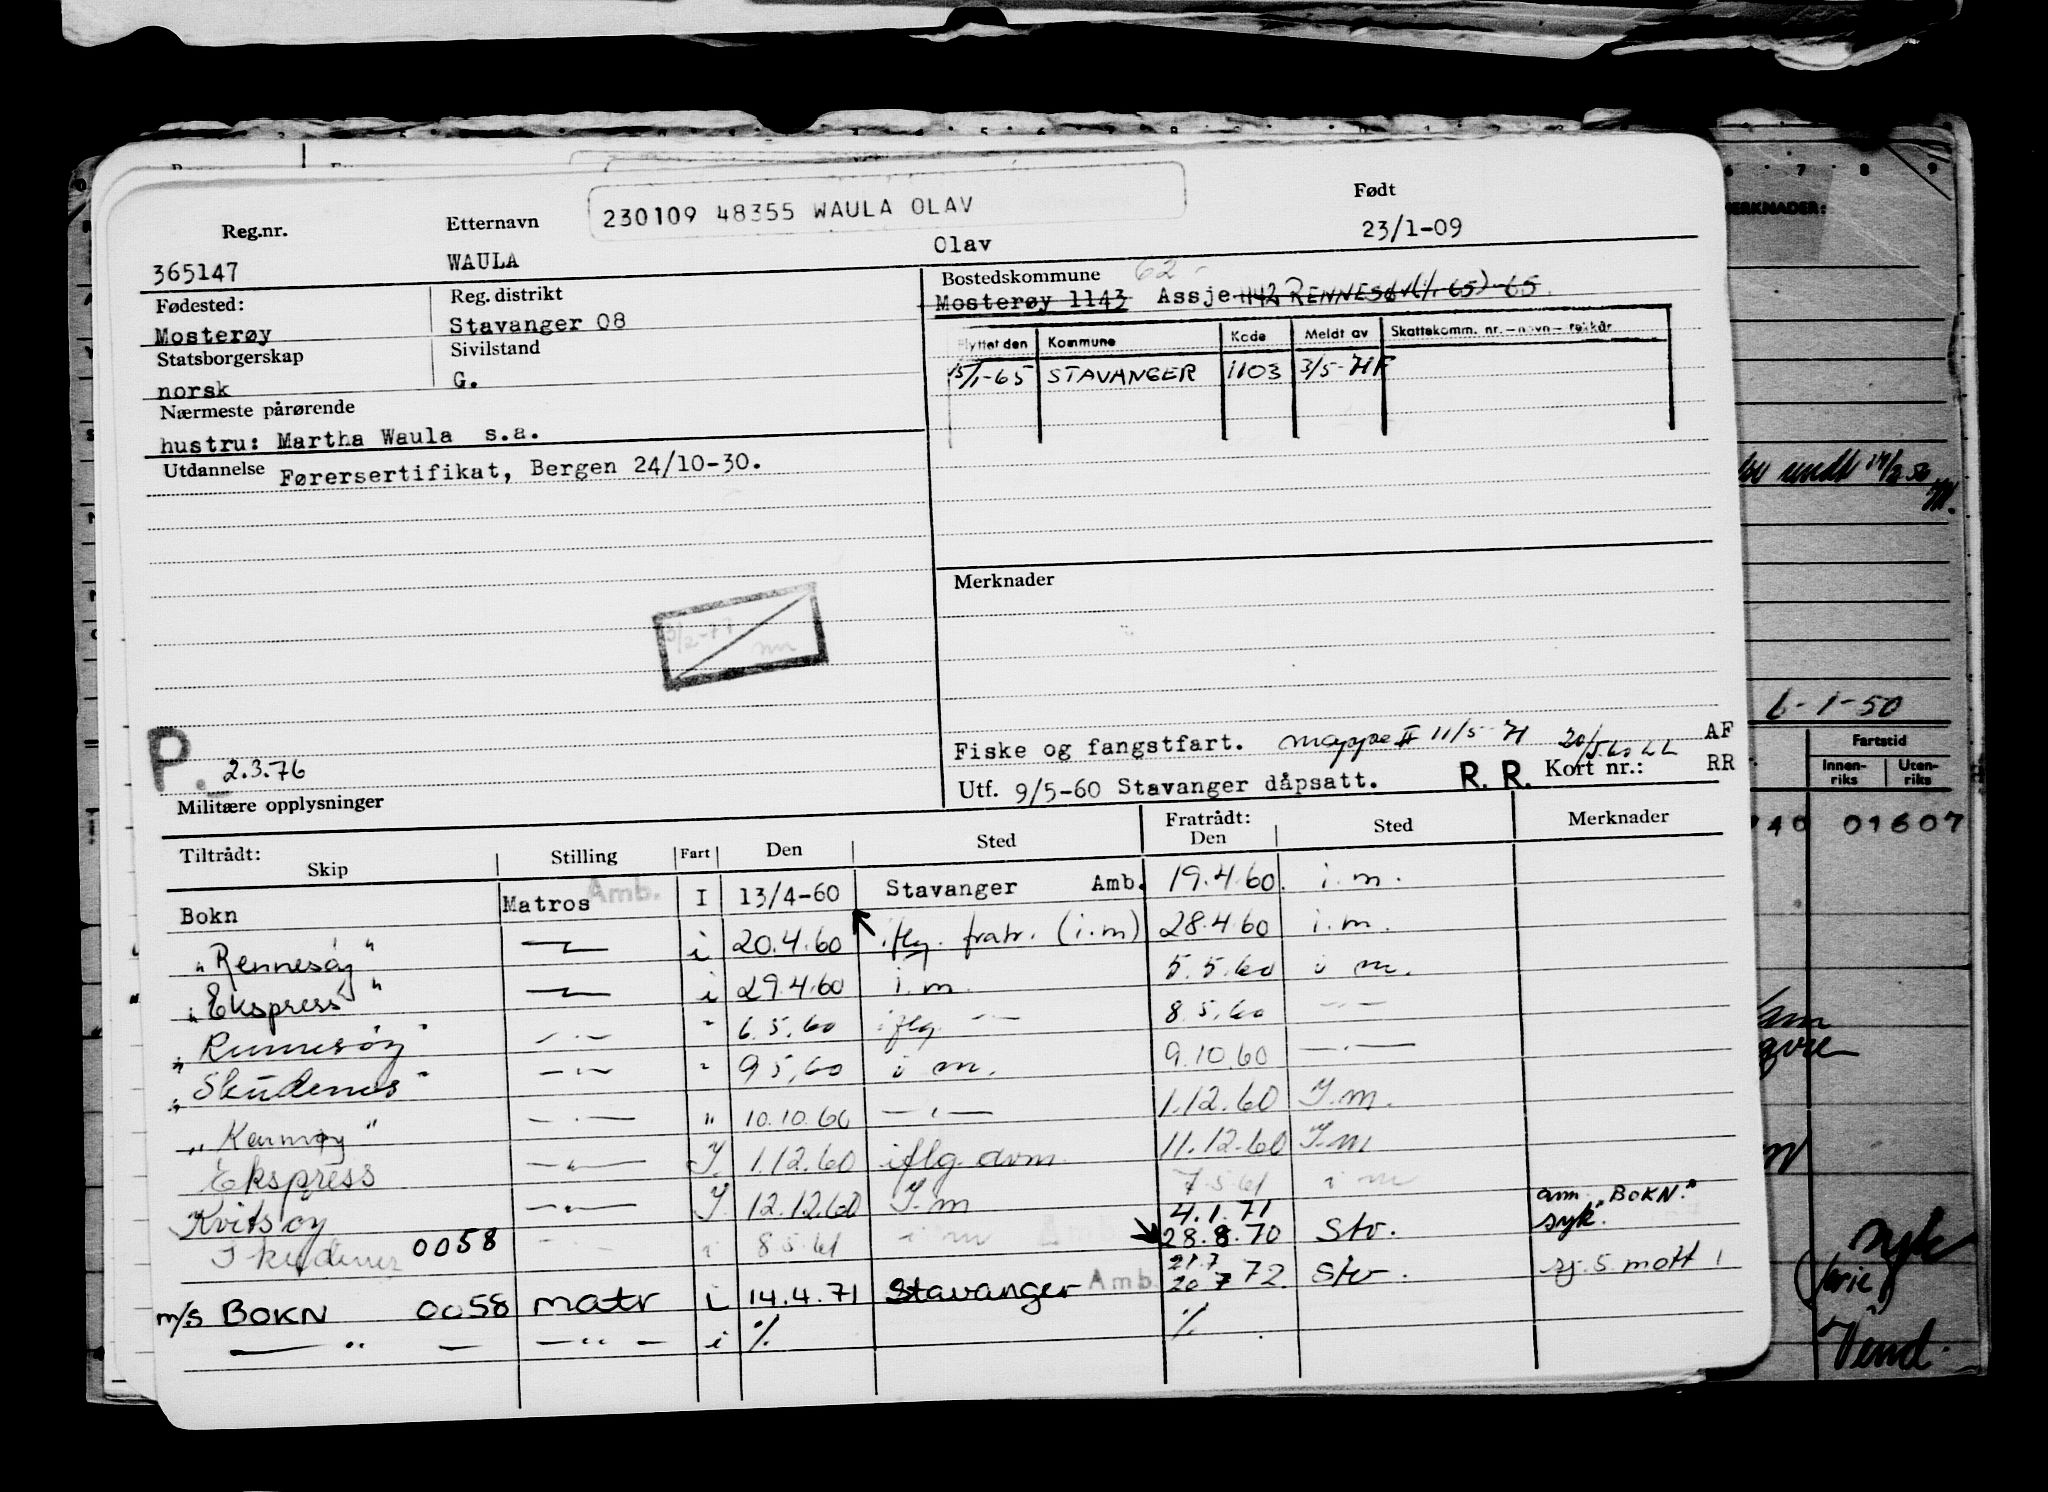 230109 48355 WAULA OLAV
Reg.nr. Etternavn Født
365147 WAULA Olav 23/1-09
Fødested: Reg. distrikt Bostedskommune 62
Mosterøy Stavanger 08 Mosterøy 1143 Assjem 1142 RENNESØY (1/1-65)-65
Statsborgerskap Sivilstand
norsk G.
Flyttet den Kommune Kode Meldt av Skattekomm. nr. – navn – rekkår
15/1-65 STAVANGER 1103 3/5-71 F
Nærmeste pårørende
hustru: Martha Waula s.a.
Utdannelse Førersertifikat, Bergen 24/10-30.
Merknader
P. 2.3.76
Fiske og fangstfart. mappe II 11/5-71 AF
Utf. 9/5-60 Stavanger dåpsatt. R. R. Kort nr.: RR
Militære opplysninger
Tiltrådt: Skip Stilling Fart Den Sted Fratrådt: Den Sted Merknader
Bokn Matros Amb. I 13/4-60 Stavanger Amb. 19.4.60. i.m.
"Rennesøy" i 20.4.60 iflg. fratr. (i.m) 28.4.60 i.m.
"Ekspress" i 29.4.60 i.m. 5.5.60 i m.
"Rennesøy" " 6.5.60 iflg. 8.5.60
"Skudenes" " 9.5.60 i m. 9.10.60
"Karmøy" " 10.10.60 1.12.60 I.m.
Ekspress I. 1.12.60 iflg. dom. 11.12.60 I.m
Kvitsøy I 12.12.60 I.m 7.5.61 i m
Skudenes 0058 i 8.5.61 i m Amb. 4.1.71 28.8.70 Stv. anm. "BOKN." syk.
m/s BOKN 0058 matr i 14.4.71 Stavanger Amb. 21.7 20.7 72 Stv. sj. 5 mott
— " — — " — i % %
MERKNADER:
6-1-50
Fartstid
Innenriks Utenriks
01607
syk
Vend.